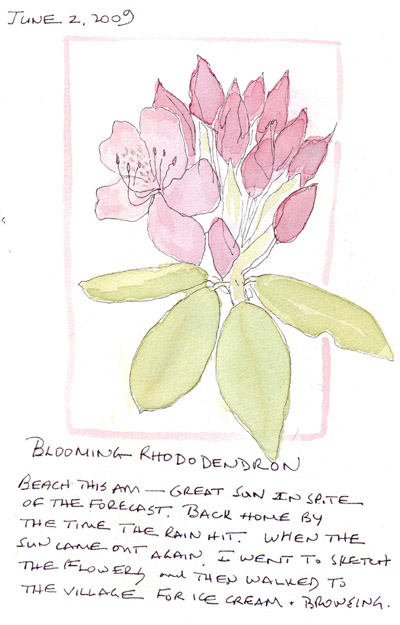 JUNE 2, 2009
BLOOMING RHODODENDRON
BEACH THIS AM — GREAT SUN IN SPITE
OF THE FORECAST. BACK HOME BY
THE TIME THE RAIN HIT. WHEN THE
SUN CAME OUT AGAIN, I WENT TO SKETCH
THE FLOWERS and THEN WALKED TO
THE VILLAGE FOR ICE CREAM + BROWSING.